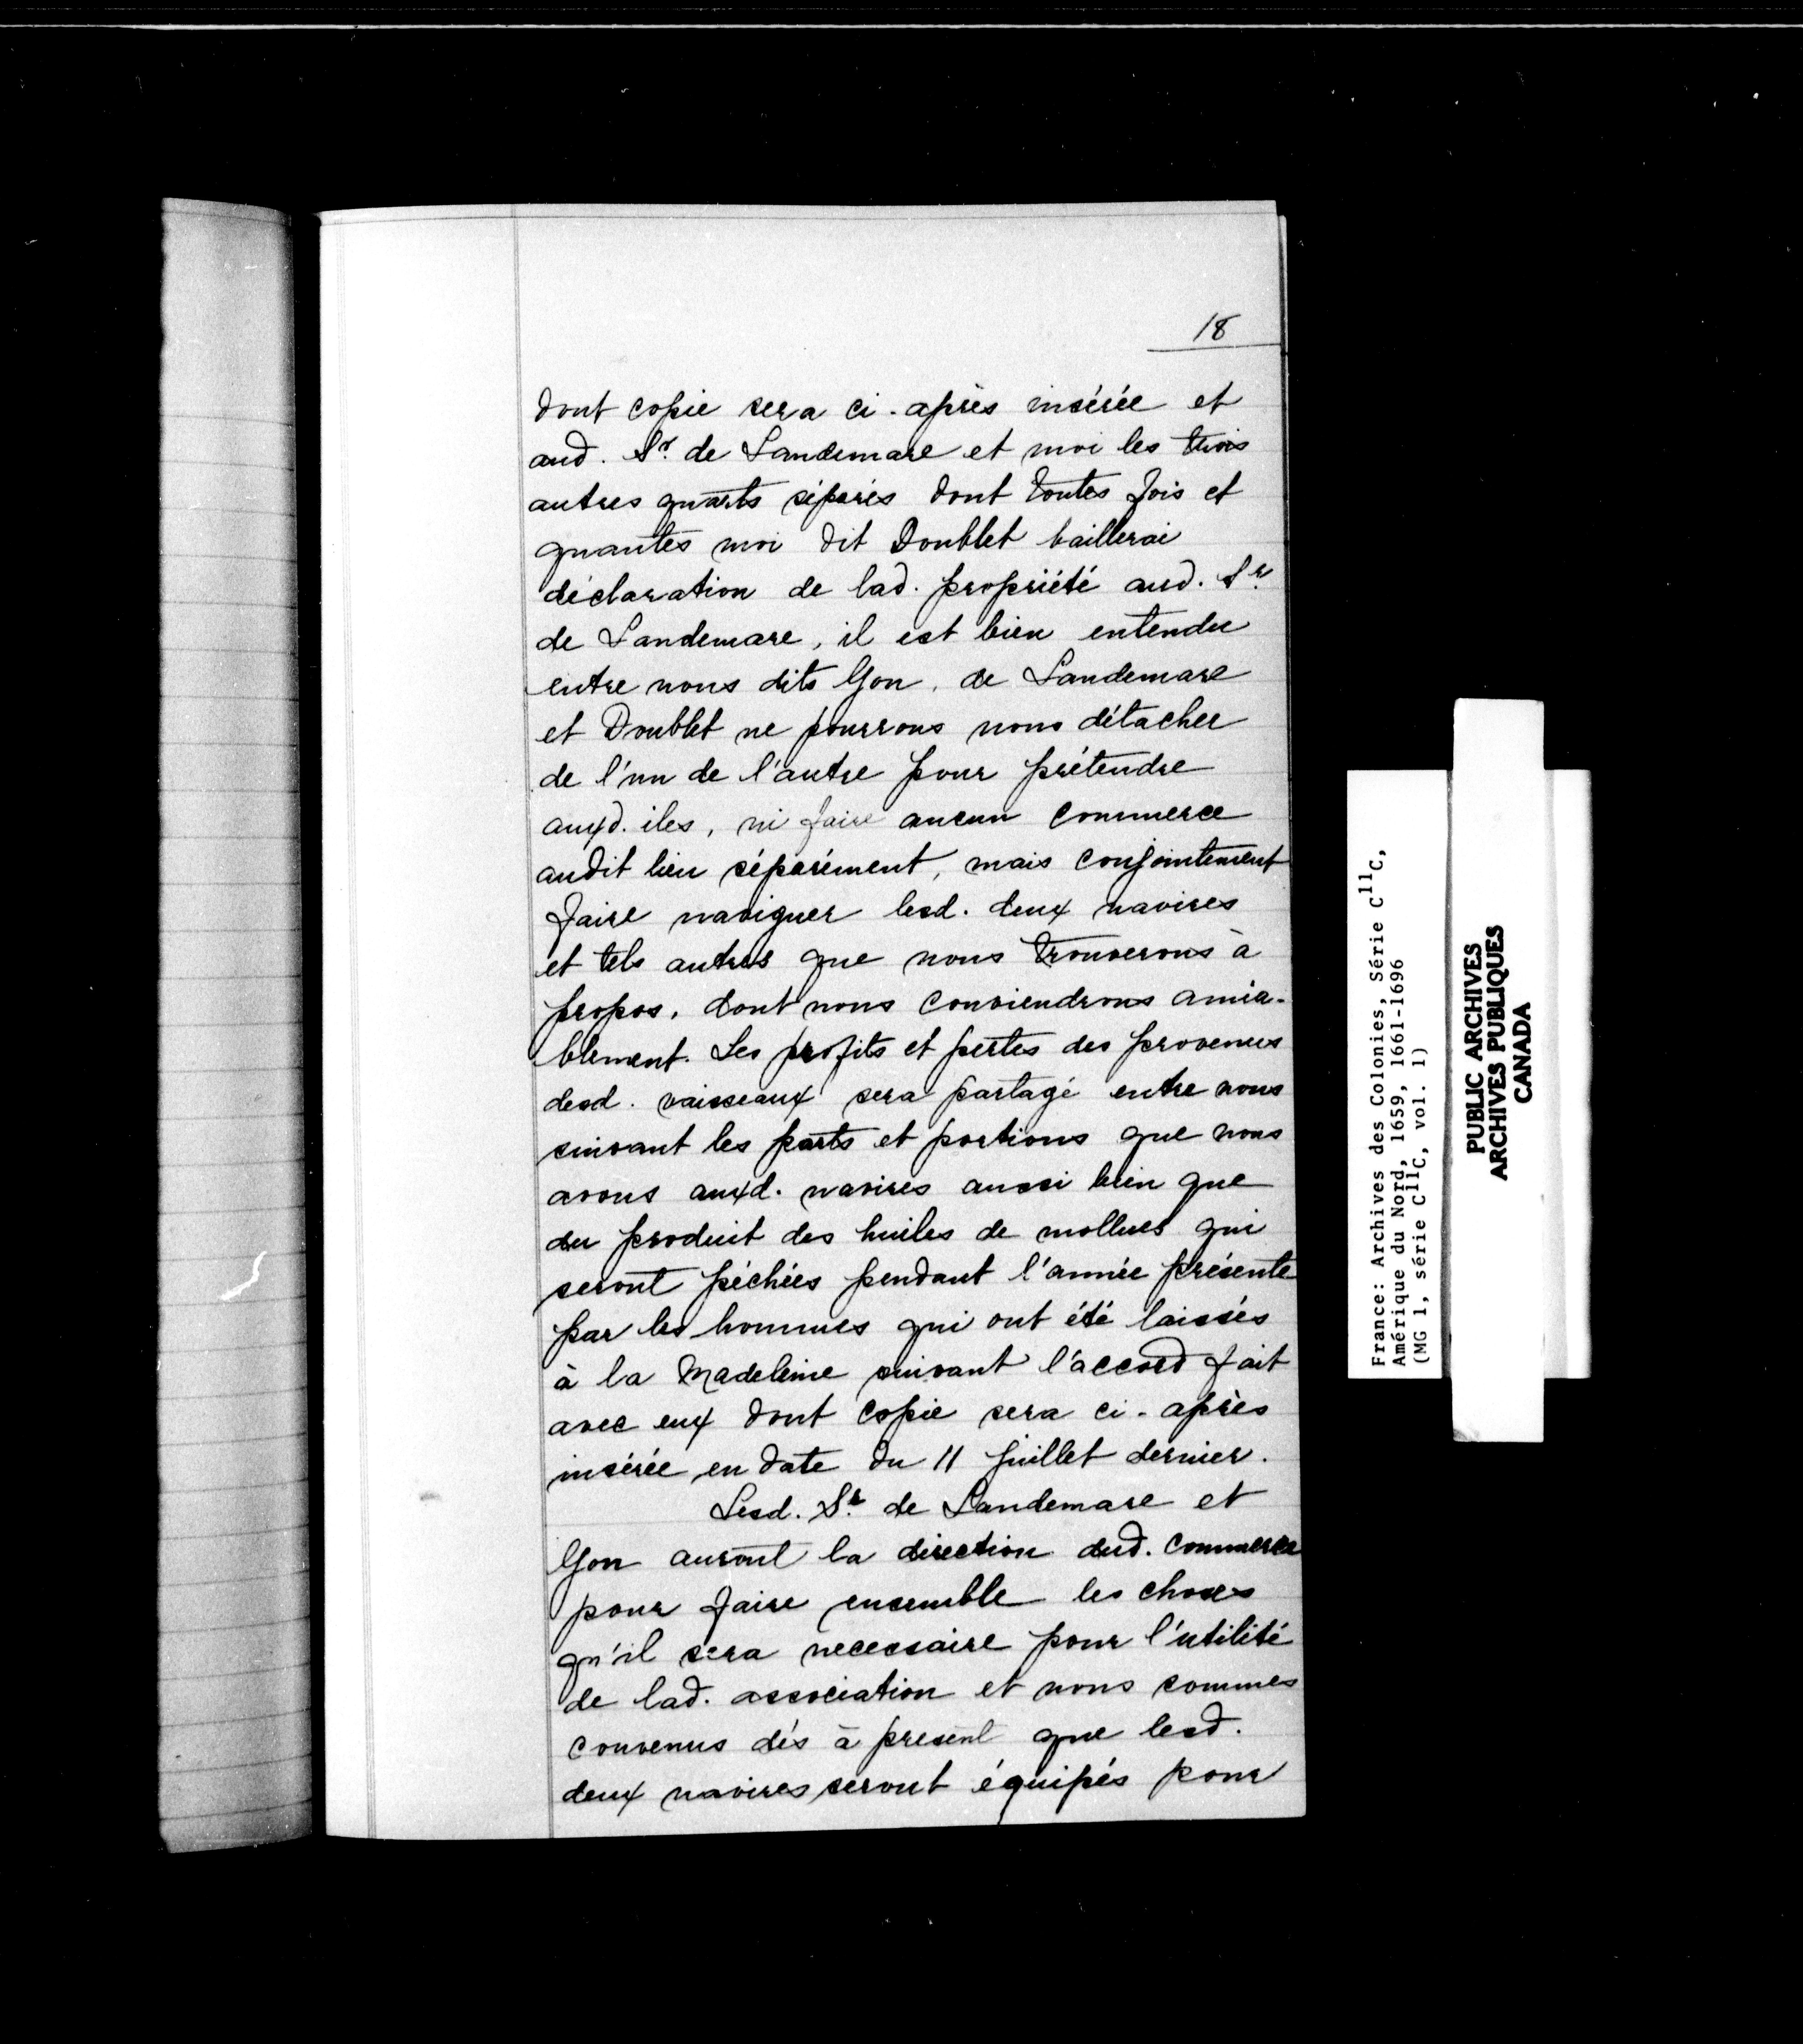 18
dont copie sera ci-après insérée et
aud. Sr. de Landemare et moi les trois
autres quarts séparés dont toutes fois et
quantes moi dit Doublet baillerai
déclaration de lad. propriété aud. Sr.
de Landemare, il est bien entendu
entre nous dits Gon, de Landemare
et Doublet ne pourrons nous détacher
de l'un de l'autre pour prétendre
auxd. iles, ni faire aucun commerce
audit lieu séparément, mais conjointement
faire naviguer lesd. deux navires
et tels autres que nous trouverons à
propos, dont nous conviendrons amia-
blement. Les profits et pertes des provenus
desd. vaisseaux sera partagé entre nous
suivant les parts et portions que nous
avons auxd. navires aussi bien que
du produit des huiles de mollues qui
seront péchées pendant l'année présente
par les hommes qui ont été laissés
à la Madeleine suivant l'accord fait
avec eux dont copie sera ci-après
insérée en date du 11 juillet dernier.
Lesd. Sr. de Landemare et
Gon auront la direction dud. commerce
pour faire ensemble les choses
qu'il sera necessaire pour l'utilité
de lad. association et nous sommes
convenus dés à present que lesd.
deux navires seront équipés pour
France: Archives des Colonies, Série C11C,
Amérique du Nord, 1659, 1661-1696
(MG 1, série C11C, vol. 1)
PUBLIC ARCHIVES
ARCHIVES PUBLIQUES
CANADA